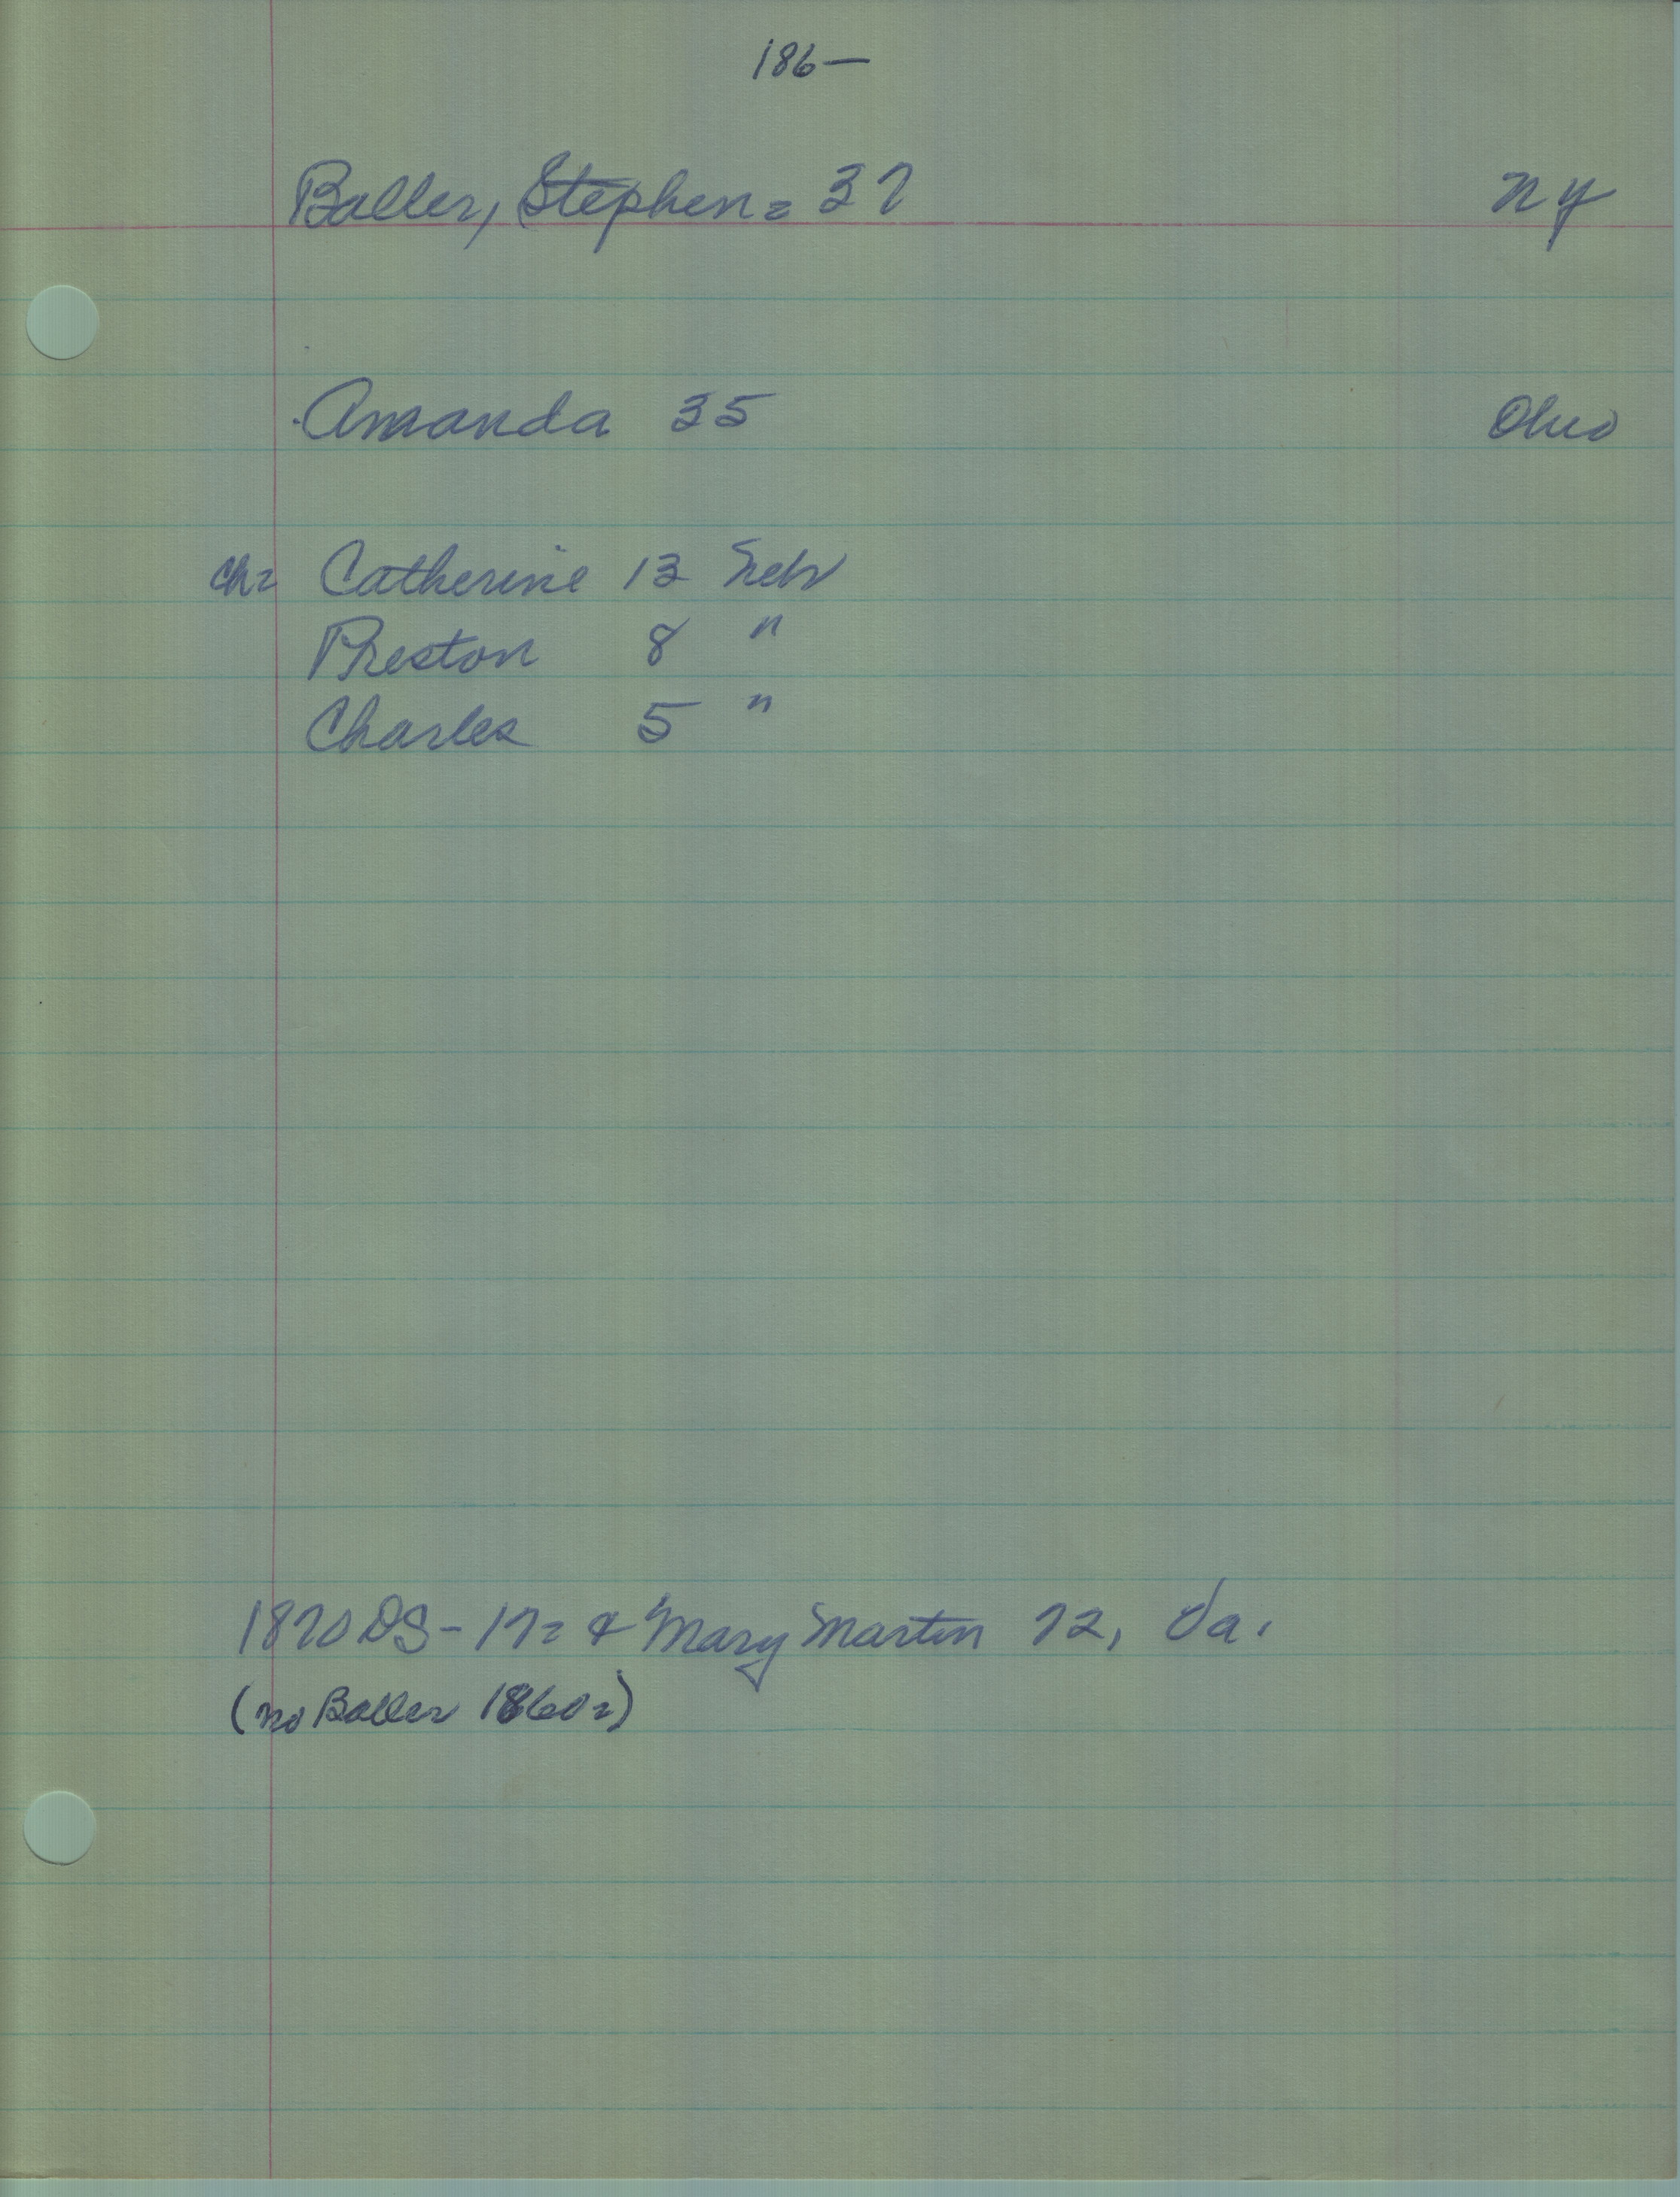 186—
Baller, Stephen = 37 NY
Amanda 35 Ohio
ch = Catherine 13 Nebr
Preston 8 "
Charles 5 "
1870 DS - 17 = & Mary Martin 72, Va.
(no Baller 1860 =)